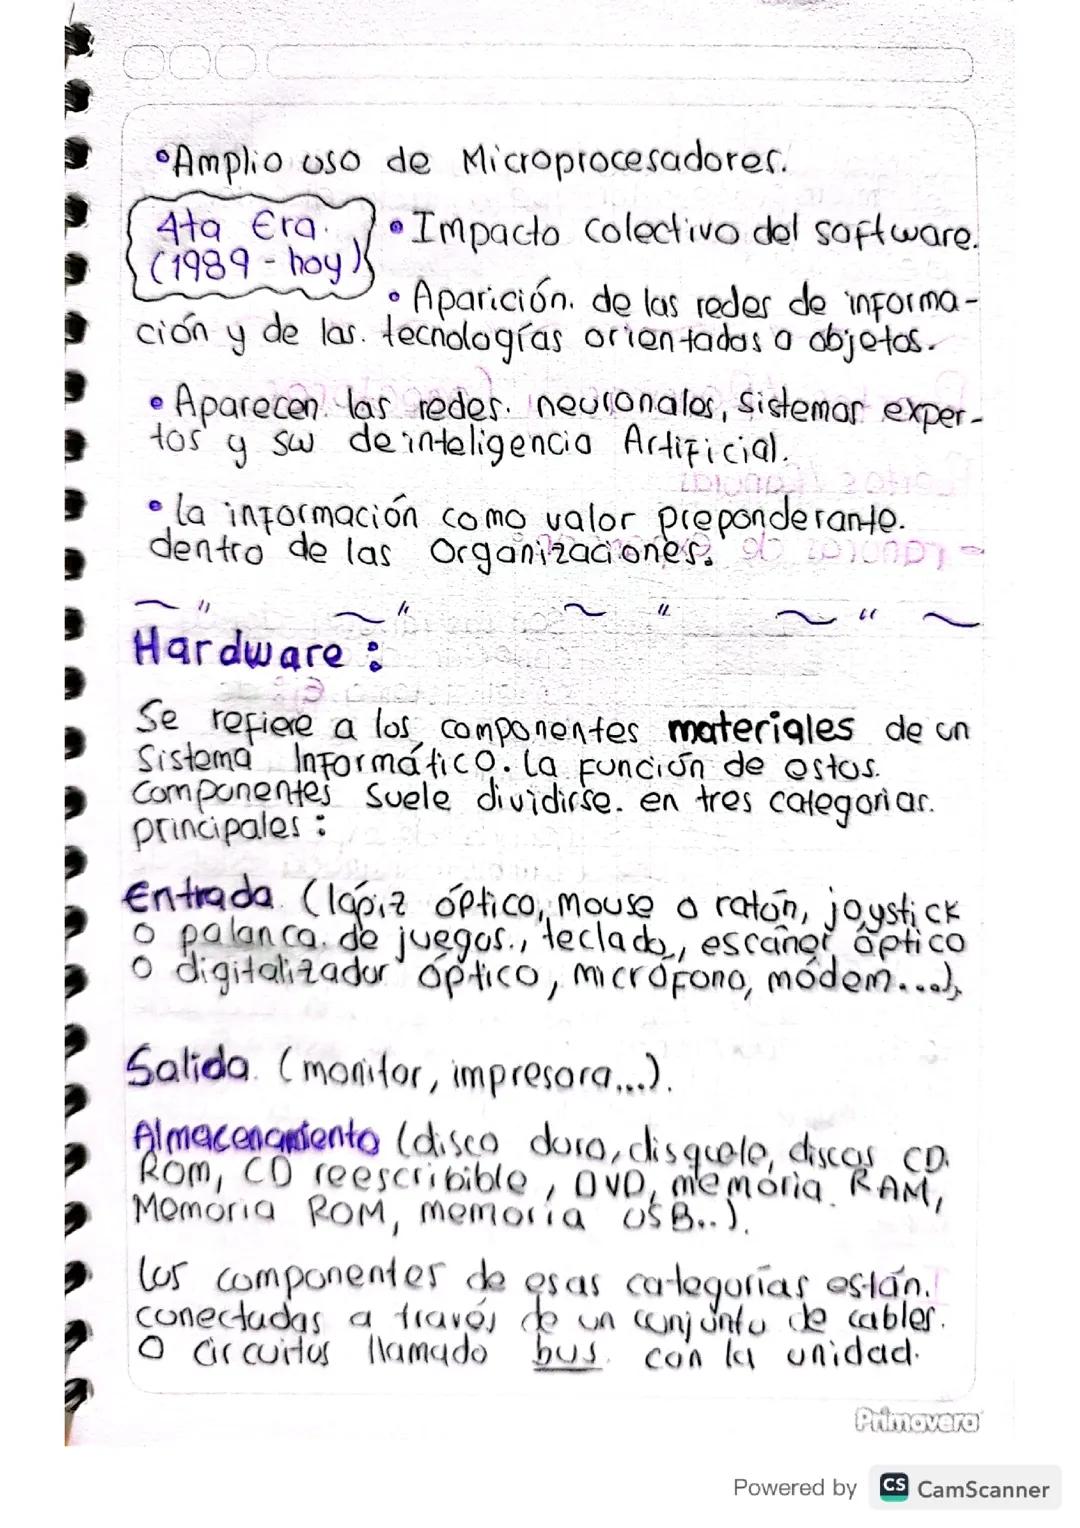 •Amplio uso de Microprocesadores.
4ta Era. •Impacto colectivo del software.
(1989 - hoy)
• Aparición. de las redes de informa-
ción y de las. tecnologías orientadas a objetos.
• Aparecen. las redes. neuronales, sistemas exper-
tos y sw de inteligencia Artificial.
• la información como valor preponderante.
dentro de las Organizaciones.
~ " ~ " ~ " ~ " ~
Hardware :
Se refiere a los componentes materiales de un
Sistema Informático. La función de estos.
Componentes Suele dividirse. en tres categorias.
principales :
Entrada. (lápiz óptico, mouse o ratón, joystick
o palanca. de juegos., teclado, escáner óptico
o digitalizador óptico, micrófono, módem...),
Salida. (monitor, impresora...).
Almacenamiento (disco duro, disquete, discos CD.
Rom, CD reescribible, DVD, memoria RAM,
Memoria ROM, memoria USB..).
Los componentes de esas categorías están.
conectadas a través de un conjunto de cables.
O circuitos llamado bus. con la unidad.
Primavera
Powered by CS CamScanner